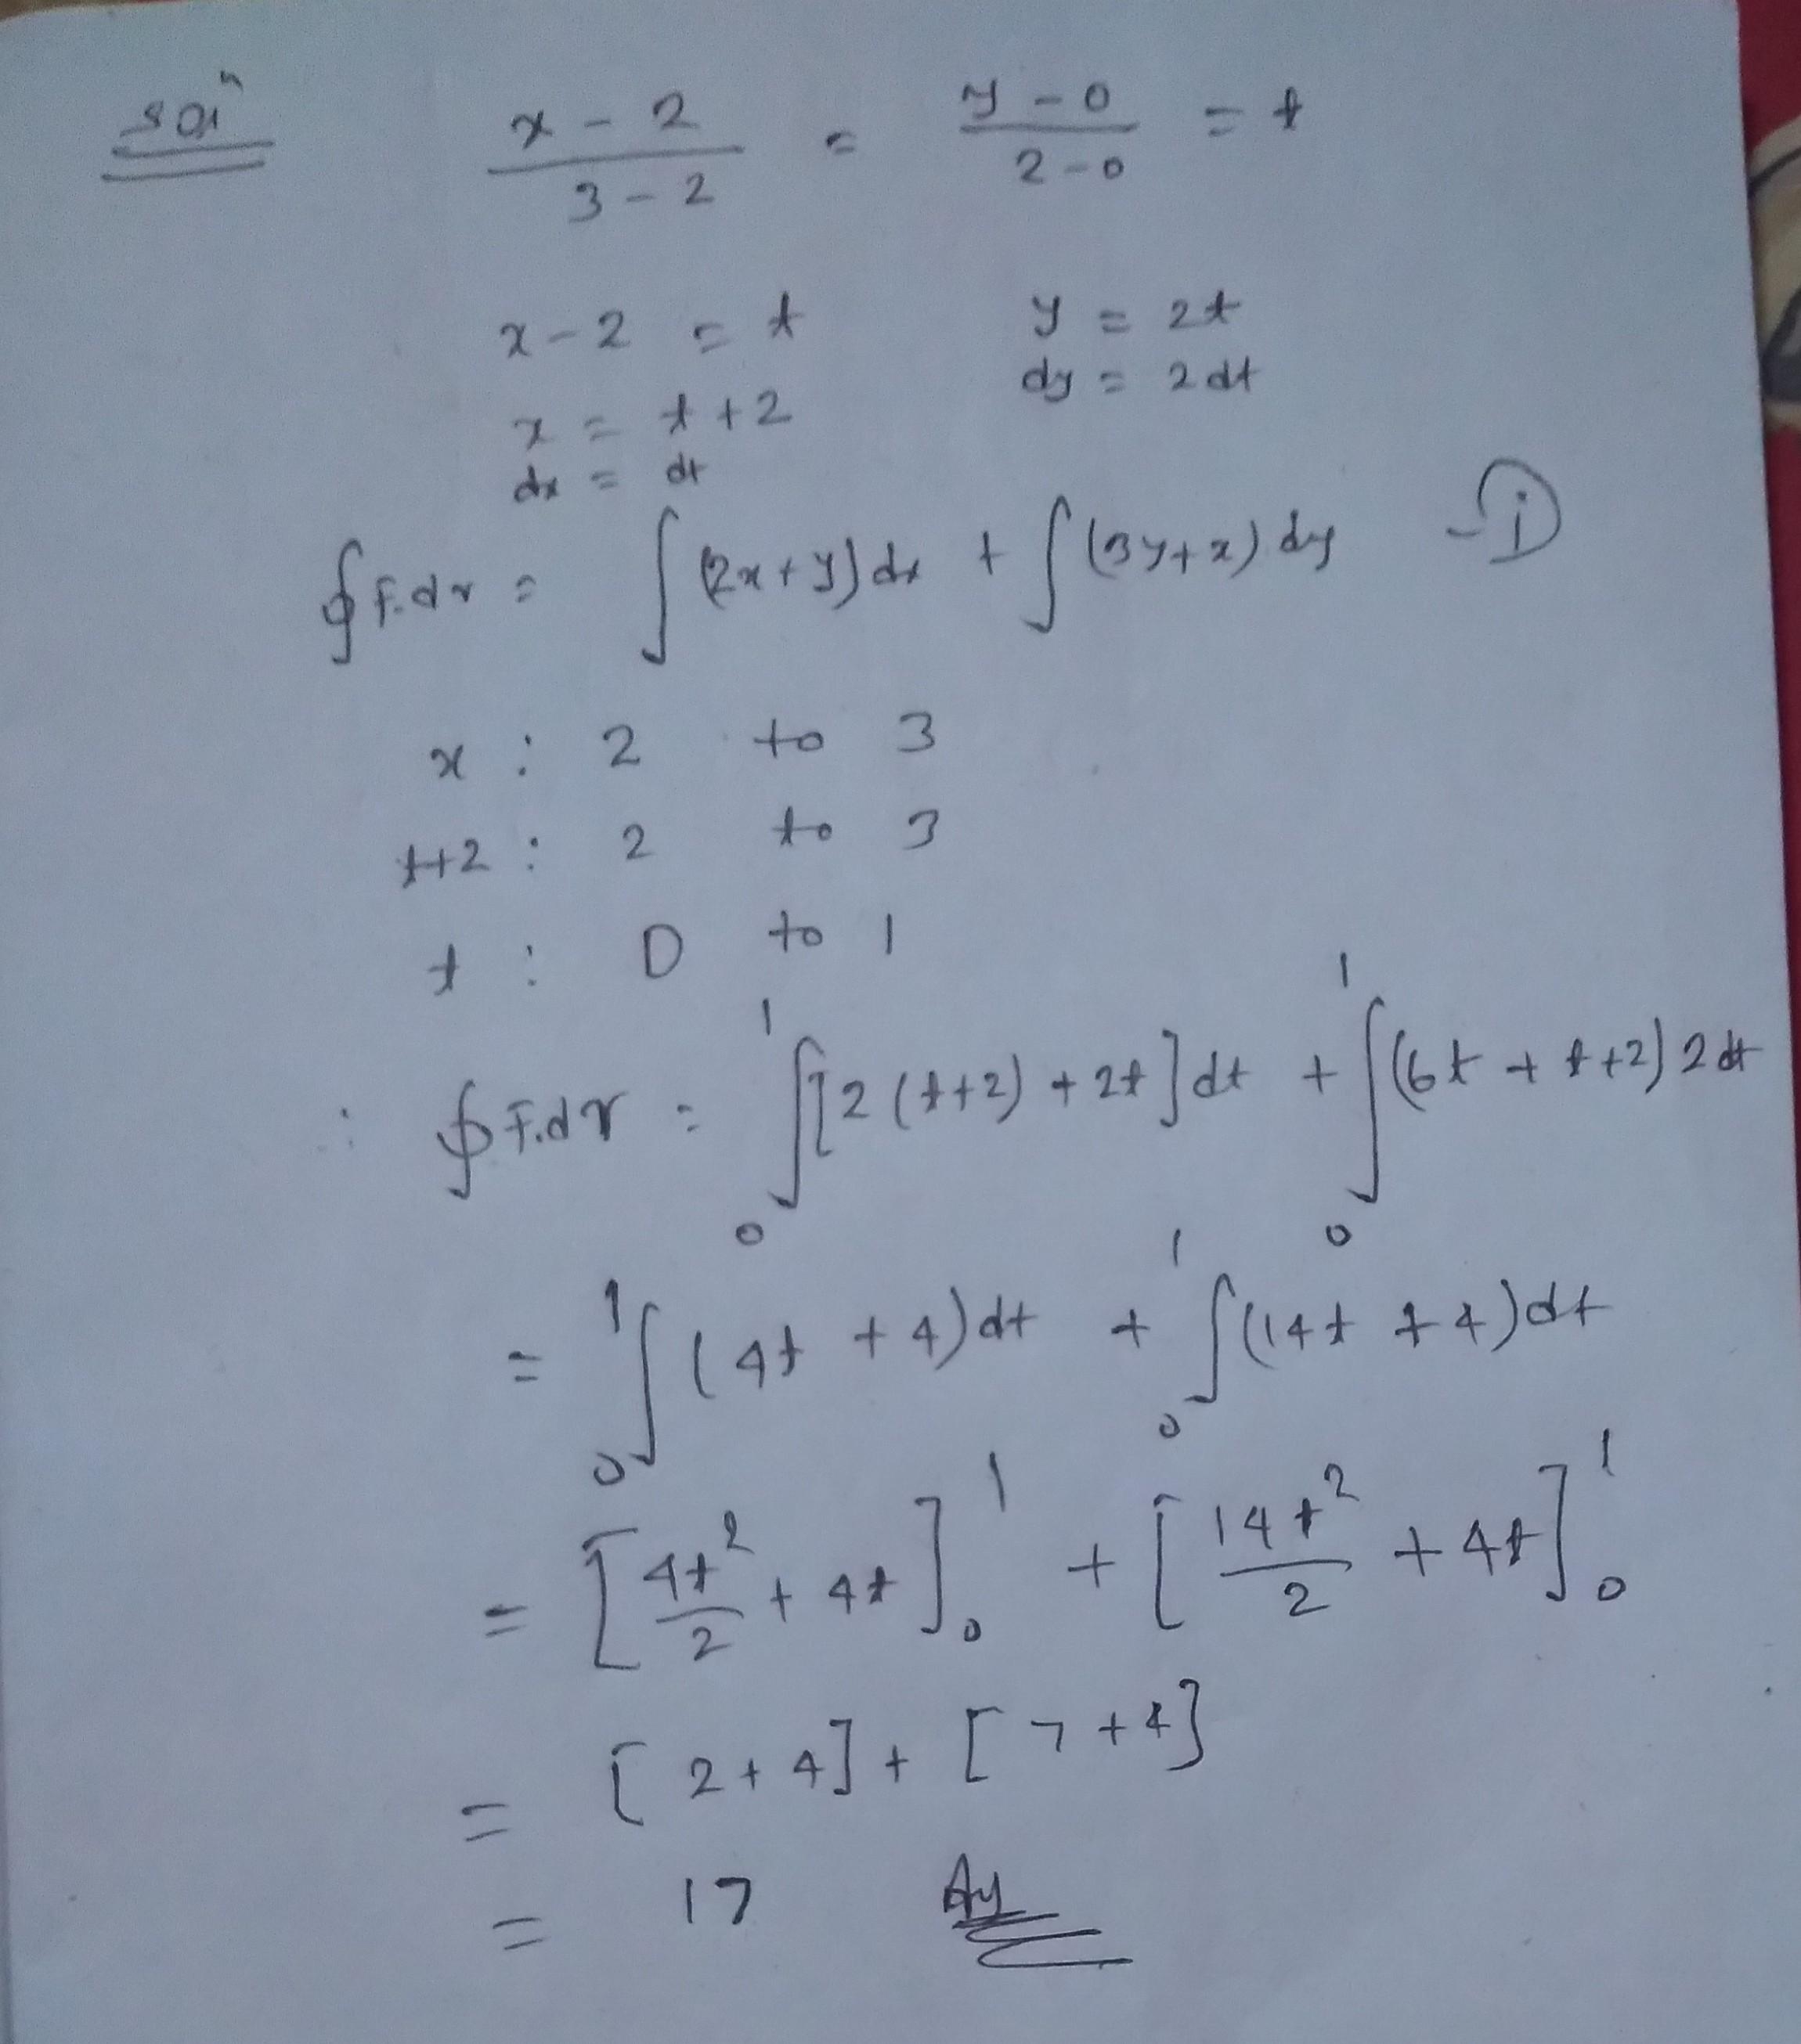 Solⁿ x - 2 / 3 - 2 = y - 0 / 2 - 0 = t
x - 2 = t y = 2t
dy = 2dt
x = t + 2
dx = dt
∮ F.dr = ∫ (2x + y) dx + ∫ (3y + x) dy - ⓘ
x : 2 to 3
t+2 : 2 to 3
t : 0 to 1
∴ ∮ F.dr = ∫₀¹ [2(t+2) + 2t] dt + ∫₀¹ (6t + t+2) 2dt
= ∫₀¹ (4t + 4) dt + ∫₀¹ (14t + 4) dt
= [4t²/2 + 4t]₀¹ + [14t²/2 + 4t]₀¹
= [2 + 4] + [7 + 4]
= 17